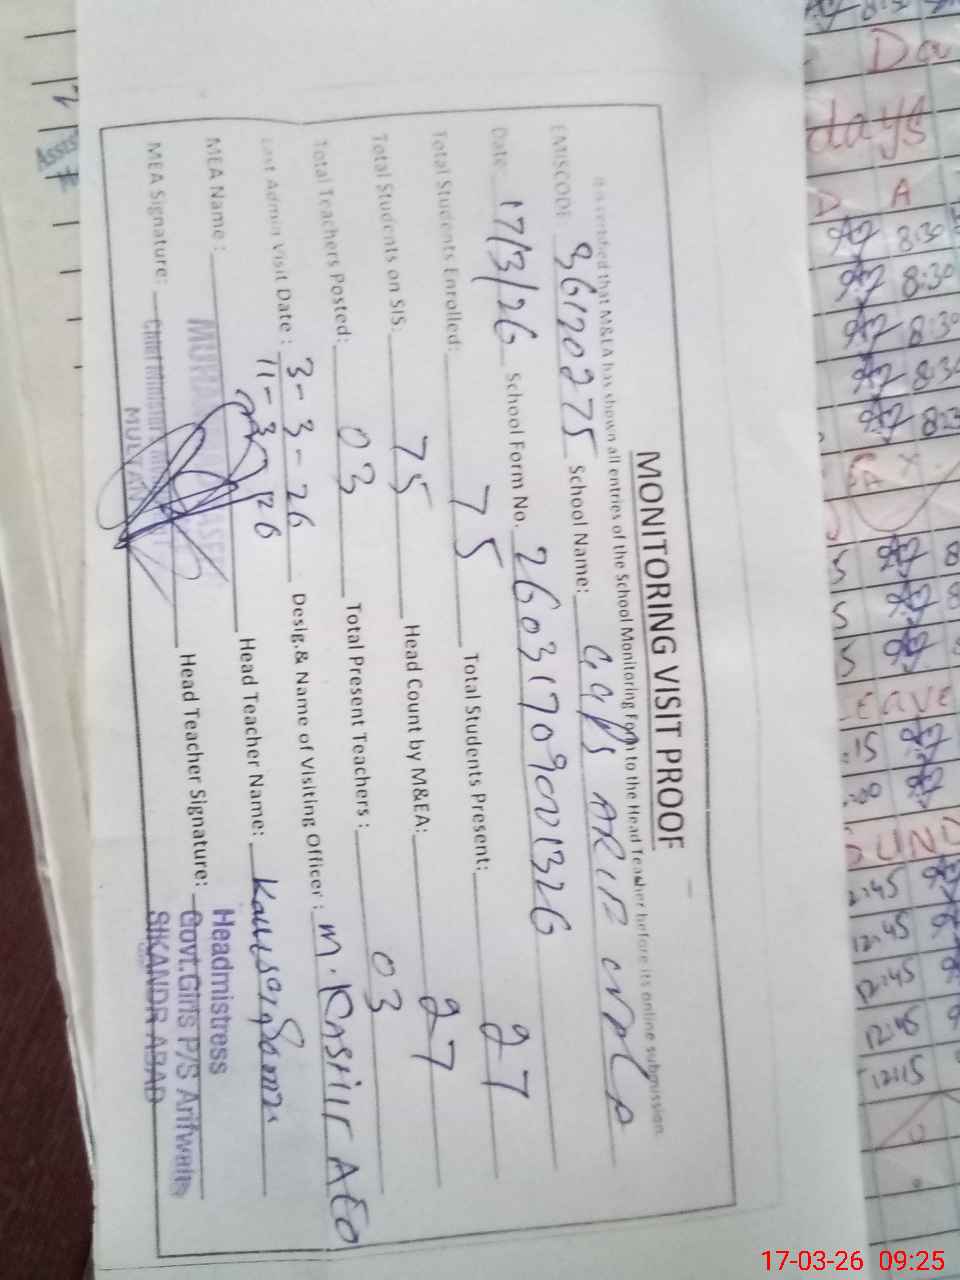 MONITORING VISIT PROOF
It is certified that M&EA has shown all entries of the School Monitoring Form to the Head Teacher before its online submission.
EMISCODE: 36120275 School Name: GGPS ARIF WALA
Date: 17/3/26 School Form No. 26031709001326
Total Students Enrolled: 75 Total Students Present: 27
Total Students on SIS: 75 Head Count by M&EA: 27
Total Teachers Posted: 03 Total Present Teachers: 03
Last Admin Visit Date: 3-3-26 Desig.& Name of Visiting Officer: M. Kashif AEO
11-3-26
MEA Name: Head Teacher Name: Kausar
MEA Signature: Head Teacher Signature:
MULTAN
Headmistress
Govt.Girls P/S Arifwala
SIKANDR ABAD
days
D A
8:30
8:30
8:30
8:30
Leave
SUND
12:45
12:45
12:45
12:15
17-03-26 09:25